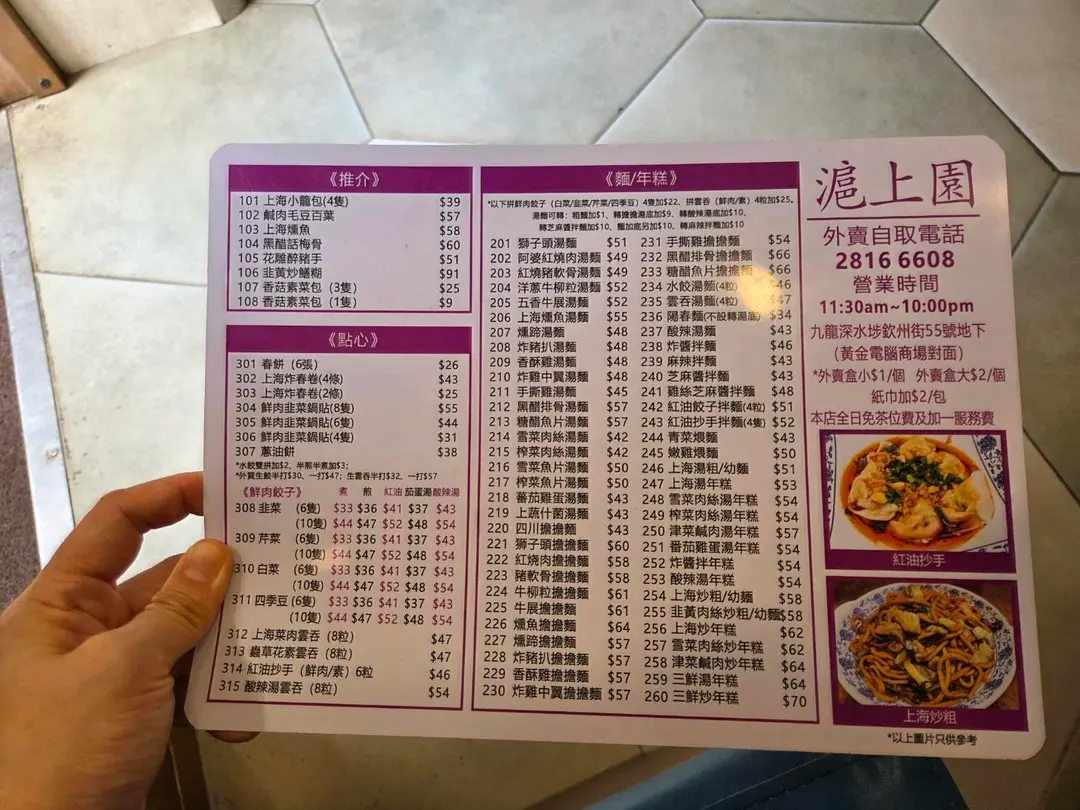 《推介》
101 上海小籠包(4隻) $39
102 鹹肉毛豆百葉 $57
103 上海燻魚 $58
104 黑醋話梅骨 $60
105 花雕醉豬手 $51
106 韭黄炒鱔糊 $91
107 香菇素菜包 (3隻) $25
108 香菇素菜包 (1隻) $9
《點心》
301 春餅 (6張) $26
302 上海炸春卷(4條) $43
303 上海炸春卷(2條) $25
304 鮮肉韭菜鍋貼(8隻) $55
305 鮮肉韭菜鍋貼(6隻) $44
306 鮮肉韭菜鍋貼(4隻) $31
307 蔥油餅 $38
*水餃雙拼加$2、半煎半煮加$3;
*外賣生餃半打$30、一打$47; 生雲吞半打$32、一打$57
《鮮肉餃子》 煮 煎 紅油 茄蛋湯 酸辣湯
308 韭菜 (6隻) $33 $36 $41 $37 $43
(10隻) $44 $47 $52 $48 $54
309 芹菜 (6隻) $33 $36 $41 $37 $43
(10隻) $44 $47 $52 $48 $54
310 白菜 (6隻) $33 $36 $41 $37 $43
(10隻) $44 $47 $52 $48 $54
311 四季豆 (6隻) $33 $36 $41 $37 $43
(10隻) $44 $47 $52 $48 $54
312 上海菜肉雲吞 (8粒) $47
313 蟲草花素雲吞 (8粒) $47
314 紅油抄手 (鮮肉/素) 6粒 $46
315 酸辣湯雲吞 (8粒) $54
《麵/年糕》
*以下拼鮮肉餃子 (白菜/韭菜/芹菜/四季豆) 4隻加$22、拼雲吞 (鮮肉/素) 4粒加$25、
湯麵可轉: 粗麵加$1、轉擔擔湯底加$9、轉酸辣湯底加$10、
轉芝麻醬拌麵加$10、麵加底另加$10、轉麻辣拌麵加$10
201 獅子頭湯麵 $51
202 阿婆紅燒肉湯麵 $49
203 紅燒豬軟骨湯麵 $49
204 洋蔥牛柳粒湯麵 $52
205 五香牛展湯麵 $52
206 上海燻魚湯麵 $55
207 燻蹄湯麵 $48
208 炸豬扒湯麵 $48
209 香酥雞湯麵 $48
210 炸雞中翼湯麵 $48
211 手撕雞湯麵 $45
212 黑醋排骨湯麵 $57
213 糖醋魚片湯麵 $57
214 雪菜肉絲湯麵 $42
215 榨菜肉絲湯麵 $42
216 雪菜魚片湯麵 $50
217 榨菜魚片湯麵 $50
218 蕃茄雞蛋湯麵 $43
219 上蔬什菌湯麵 $43
220 四川擔擔麵 $43
221 獅子頭擔擔麵 $60
222 紅燒肉擔擔麵 $58
223 豬軟骨擔擔麵 $58
224 牛柳粒擔擔麵 $61
225 牛展擔擔麵 $61
226 燻魚擔擔麵 $64
227 燻蹄擔擔麵 $57
228 炸豬扒擔擔麵 $57
229 香酥雞擔擔麵 $57
230 炸雞中翼擔擔麵 $57
231 手撕雞擔擔麵 $54
232 黑醋排骨擔擔麵 $66
233 糖醋魚片擔擔麵 $66
234 水餃湯麵(4粒) $46
235 雲吞湯麵(4粒) $47
236 陽春麵(不設轉湯底) $34
237 酸辣湯麵 $43
238 炸醬麵 $46
239 麻辣拌麵 $43
240 芝麻醬拌麵 $43
241 雞絲芝麻醬拌麵 $48
242 紅油餃子拌麵(4粒) $51
243 紅油抄手拌麵(4隻) $52
244 青菜煨麵 $43
245 嫩雞煨麵 $50
246 上海湯粗/幼麵 $51
247 上海湯年糕 $53
248 雪菜肉絲湯年糕 $54
249 榨菜肉絲湯年糕 $54
250 津菜鹹肉湯年糕 $57
251 番茄雞蛋湯年糕 $54
252 炸醬拌年糕 $54
253 酸辣湯年糕 $54
254 上海炒粗/幼麵 $58
255 韭黃肉絲炒粗/幼麵 $58
256 上海炒年糕 $62
257 雪菜肉絲炒年糕 $62
258 津菜鹹肉炒年糕 $64
259 三鮮湯年糕 $64
260 三鮮炒年糕 $70
滬上園
外賣自取電話
2816 6608
營業時間
11:30am~10:00pm
九龍深水埗欽州街55號地下
(黃金電腦商場對面)
*外賣盒小$1/個 外賣盒大$2/個
紙巾加$2/包
本店全日免茶位費及加一服務費
紅油抄手
上海炒粗
*以上圖片只供參考